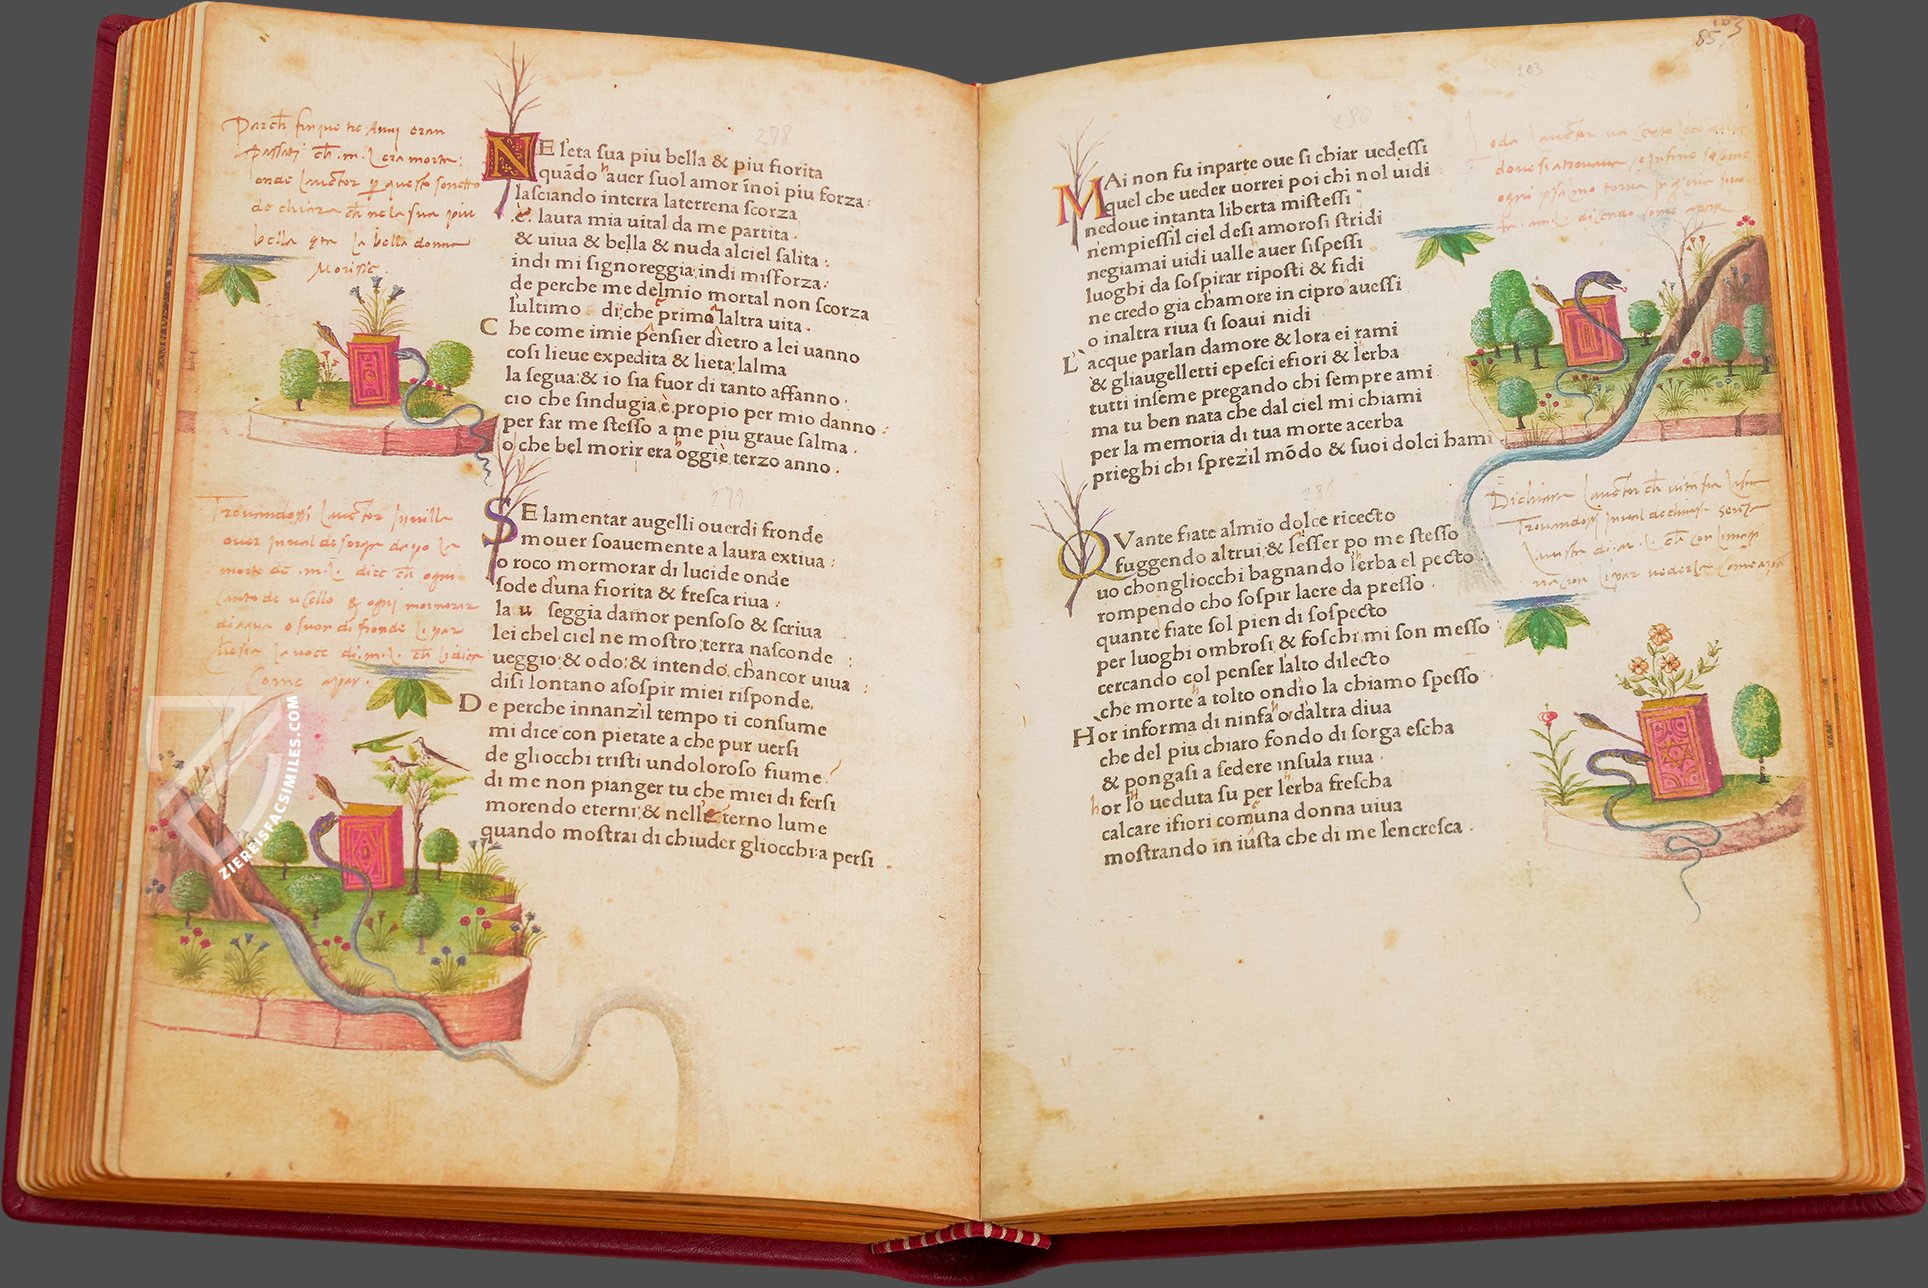 278
NE leta sua piu bella & piu fiorita
quãdo hauer suol amor ĩnoi piu forza:
lasciando interra laterrena scorza
e laura mia uital da me partita.
& uiua & bella & nuda alciel salita:
indi mi signoreggia,indi misforza:
de perche me delmio mortal non scorza
lultimo di;che primo laltra uita.
C he come imie pẽnsier dietro a lei uanno
cosi lieue expedita & lieta lalma
la segua:& io sia fuor di tanto affanno.
cio che sindugia,è propio per mio danno
per far me stesso a me piu graue salma.
o che bel morir era hoggiè terzo anno.
279
SE lamentar augelli ouerdi fronde
mouer soauemente a laura extiua:
o roco mormorar di lucide onde
sode duna fiorita & fresca riua:
la u seggia damor pensoso & scriua
lei chel ciel ne mostro;terra nasconde
ueggio:& odo:& intendo.chancor uiua
disi lontano asospir miei risponde.
D e perche innanzil tempo ti consume
mi dice con pietate a che pur uersi
de gliocchi tristi undoloroso fiume
di me non pianger tu che miei di fersi
morendo eterni:& nelleterno lume
quando mostrai di chiuder gliocchi:a persi
Parch finque tre Anni eran
passati ch .m.L era morta:
onde Lauctor questo sonetto
dechiara ch nela sua piu
bella eta la bella donna
Morisse.
Trouandossi Lauctor Inuilla
ouer Inual de sorga dapo la
morte de .m.L. dice ch ogni
canto de ucello & ogni mormorar
di aqua o suon di fronde li par
la uoce di.m.L. ch li dica
Come apar.
ZIEREISFACSIMILES.COM
103
85.
103
280
MAi non fu inparte oue si chiar uedessi
quel che ueder uorrei poi chi nol uidi
nedoue intanta liberta mistessi
nempiessil ciel desi amorosi stridi
negiamai uidi ualle hauer sispessi
luoghi da sospirar riposti & fidi
ne credo gia chamore in cipro auessi
o inaltra riua si soaui nidi
L acque parlan damore & lora ei rami
& gliaugelletti epesci efiori & lerba
tutti inseme pregando chi sempre ami
ma tu ben nata che dal ciel mi chiami
per la memoria di tua morte acerba
prieghi chi sprezil mõdo & suoi dolci hami
281
QVante fiate almio dolce ricecto
fuggendo altrui:& sesser po me stesso
uo chongliocchi bagnando lherba el pecto
rompendo cho sospir laere da presso.
quante fiate sol pien di sospecto
per luoghi ombrosi & foschi mi son messo
cercando col penser lalto dilecto
che morte ha tolto ondio la chiamo spesso
H or informa di ninfa o daltra diua
che del piu chiaro fondo di sorga escha
& pongasi a sedere insula riua
hor lho ueduta su per lherba frescha
calcare ifiori comuna donna uiua
mostrando in iusta che di me lencresca.
Loda Lauctor un certo loco
doue si atrouaua
dicendo come apar
Dichiara Lauctor ch
Trouandossi Inual dechiusa senza